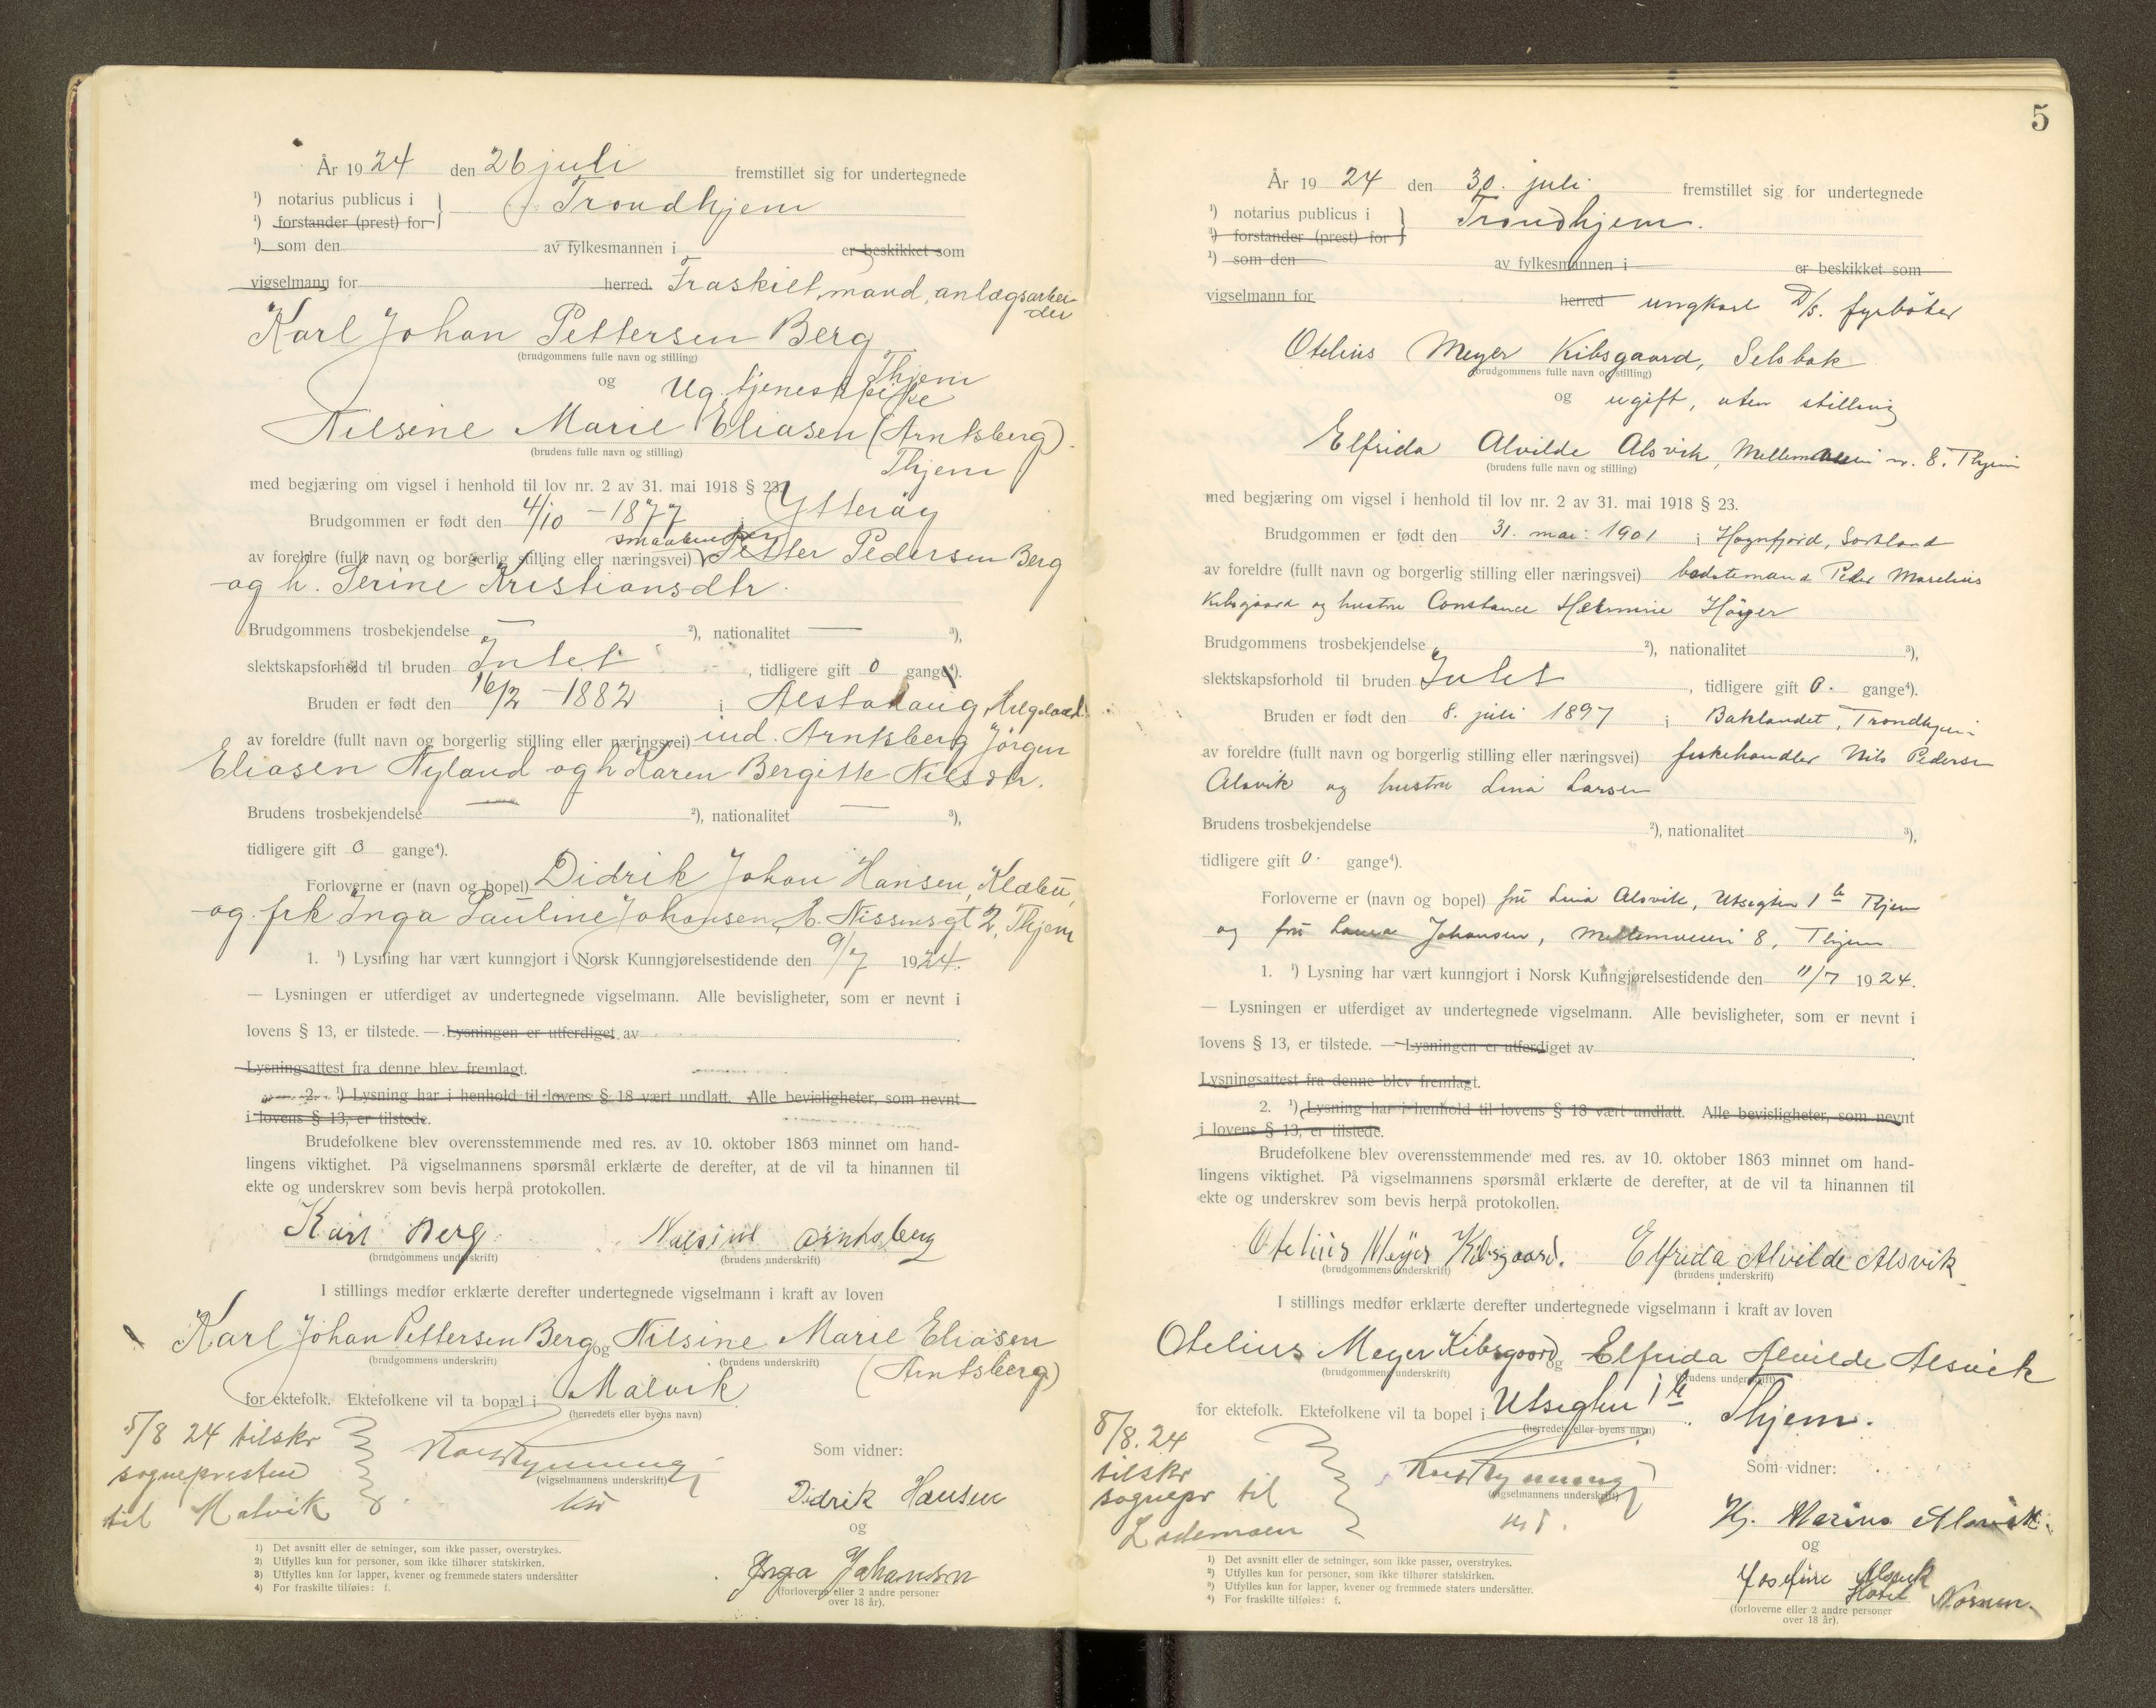 År 1924 den 26 juli fremstillet sig for undertegnede
¹) notarius publicus i } Trondhjem
¹) forstander (prest) for
¹) som den av fylkesmannen i er beskikket som
vigselmann for herred. Fraskilt mand, anlægsarbei-
der
Karl Johan Pettersen Berg
(brudgommens fulle navn og stilling) Thjem
og Ug. tjenestepike
Nilsine Marie Eliasen (Arntsberg).
(brudens fulle navn og stilling) Thjem
med begjæring om vigsel i henhold til lov nr. 2 av 31. mai 1918 § 23.
Brudgommen er født den 4/10 – 1877 i Ytterøy
av foreldre (fullt navn og borgerlig stilling eller næringsvei) Petter Pedersen Berg
og h. Serine Kristiansdtr.
Brudgommens trosbekjendelse — ²), nationalitet — ³),
slektskapsforhold til bruden Intet, tidligere gift 0 gange⁴).
Bruden er født den 16/2 – 1882 i Alstahaug, Helgeland
av foreldre (fullt navn og borgerlig stilling eller næringsvei) ind. Arntsberg Jörgen
Eliasen Nyland og h Karen Bergitte Nilsdtr.
Brudens trosbekjendelse — ²), nationalitet — ³),
tidligere gift 0 gange⁴).
Forloverne er (navn og bopel) Didrik Johan Hansen, Klæbu,
og frk Inga Pauline Johansen, E. Nissensgt 2, Thjem
1. ¹) Lysning har vært kunngjort i Norsk Kunngjørelsestidende den 9/7 1924.
— Lysningen er utferdiget av undertegnede vigselmann. Alle bevisligheter, som er nevnt i
lovens § 13, er tilstede. — Lysningen er utferdiget av
Lysningsattest fra denne blev fremlagt.
2. ¹) Lysning har i henhold til lovens § 18 vært undlatt. Alle bevisligheter, som nevnt
i lovens § 13, er tilstede.
Brudefolkene blev overensstemmende med res. av 10. oktober 1863 minnet om hand-
lingens viktighet. På vigselmannens spørsmål erklærte de derefter, at de vil ta hinannen til
ekte og underskrev som bevis herpå protokollen.
Karl Berg Nilsine Arntsberg
(brudgommens underskrift) (brudens underskrift)
I stillings medfør erklærte derefter undertegnede vigselmann i kraft av loven
Karl Johan Pettersen Berg og Nilsine Marie Eliasen
(brudgommens underskrift) (brudens underskrift) (Arntsberg)
for ektefolk. Ektefolkene vil ta bopæl i Malvik
(herredets eller byens navn)
5/8 24 tilskr
sognepresten
til Malvik
(vigselmannens underskrift)
Som vidner:
Didrik Hansen
og
Inga Johansen
(forloverne eller 2 andre personer
over 18 år).
1) Det avsnitt eller de setninger, som ikke passer, overstrykes.
2) Utfylles kun for personer, som ikke tilhører statskirken.
3) Utfylles kun for lapper, kvener og fremmede staters undersåtter
4) For fraskilte tilføies: f.
5
År 1924 den 30. juli fremstillet sig for undertegnede
¹) notarius publicus i } Trondhjem.
¹) forstander (prest) for
¹) som den av fylkesmannen i er beskikket som
vigselmann for herred ungkarl D/s. fyrbøter
Otelius Meyer Kibsgaard, Selsbak
(brudgommens fulle navn og stilling)
og ugift, uten stilling
Elfrida Alvilde Alsvik, Mellemveien nr. 8, Thjem
(brudens fulle navn og stilling)
med begjæring om vigsel i henhold til lov nr. 2 av 31. mai 1918 § 23.
Brudgommen er født den 31. mai 1901 i Hognfjord, Sortland
av foreldre (fullt navn og borgerlig stilling eller næringsvei) Peder Marelius
Kibsgaard og hustru Constance Hermine Høyer
Brudgommens trosbekjendelse ²), nationalitet ³),
slektskapsforhold til bruden Intet, tidligere gift 0. gange⁴).
Bruden er født den 8. juli 1897 i Baklandet, Trondhjem
av foreldre (fullt navn og borgerlig stilling eller næringsvei) fiskehandler Nils Pedersen
Alsvik og hustru Lina Larsen
Brudens trosbekjendelse ²), nationalitet ³),
tidligere gift 0. gange⁴).
Forloverne er (navn og bopel) fru Lina Alsvik, Utsigten 1 b Thjem
og fru Laura Johansen, Mellemveien 8, Thjem
1. ¹) Lysning har vært kunngjort i Norsk Kunngjørelsestidende den 11/7 1924.
— Lysningen er utferdiget av undertegnede vigselmann. Alle bevisligheter, som er nevnt i
lovens § 13, er tilstede. — Lysningen er utferdiget av
Lysningsattest fra denne blev fremlagt.
2. ¹) Lysning har i henhold til lovens § 18 vært undlatt. Alle bevisligheter, som nevnt
i lovens § 13, er tilstede.
Brudefolkene blev overensstemmende med res. av 10. oktober 1863 minnet om hand-
lingens viktighet. På vigselmannens spørsmål erklærte de derefter, at de vil ta hinannen til
ekte og underskrev som bevis herpå protokollen.
Otelius Meyer Kibsgaard. Elfrida Alvilde Alsvik
(brudgommens underskrift) (brudens underskrift)
I stillings medfør erklærte derefter undertegnede vigselmann i kraft av loven
Otelius Meyer Kibsgaard og Elfrida Alvilde Alsvik
(brudgommens underskrift) (brudens underskrift)
for ektefolk. Ektefolkene vil ta bopel i Utsigten 1 b. Thjem.
(herredets eller byens navn)
8/8. 24
tilskr
sognepr til
Lademoen
(vigselmannens underskrift)
Som vidner:
Hj. Marino Alsvik.
og
Josefine Alsvik
Hotel Norrøn.
(forloverne eller 2 andre personer
over 18 år).
¹) Det avsnitt eller de setninger, som ikke passer, overstrykes.
²) Utfylles kun for personer, som ikke tilhører statskirken.
³) Utfylles kun for lapper, kvener og fremmede staters undersåtter.
⁴) For fraskilte tilføies: f.